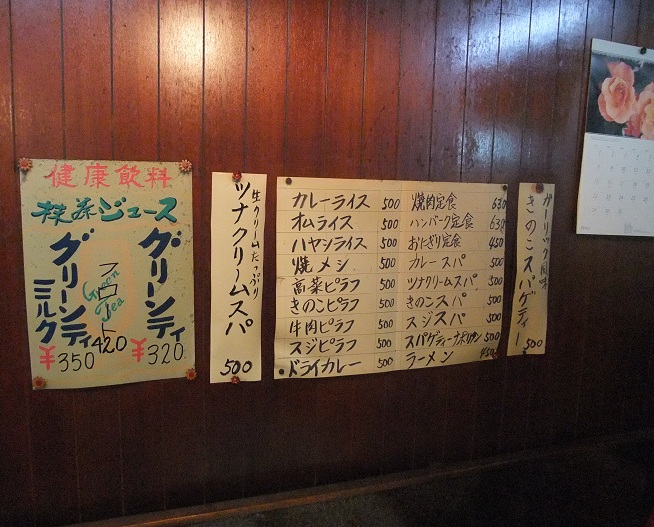 健康飲料
抹茶ジュース
グリーンティ
¥320
フロート
Green Tea
420
グリーンティ
ミルク
¥350
生クリームたっぷり
ツナクリームスパ
500
カレーライス 500
オムライス 500
ハヤシライス 500
焼メシ 500
高菜ピラフ 500
きのこピラフ 500
牛肉ピラフ 500
スジピラフ 500
ドライカレー 500
焼肉定食 630
ハンバーグ定食 630
おにぎり定食 450
カレースパ 500
ツナクリームスパ 500
きのこスパ 500
スジスパ 500
スパゲティーナポリタン 500
ラーメン 450
ガーリック風味
きのこスパゲティー
500